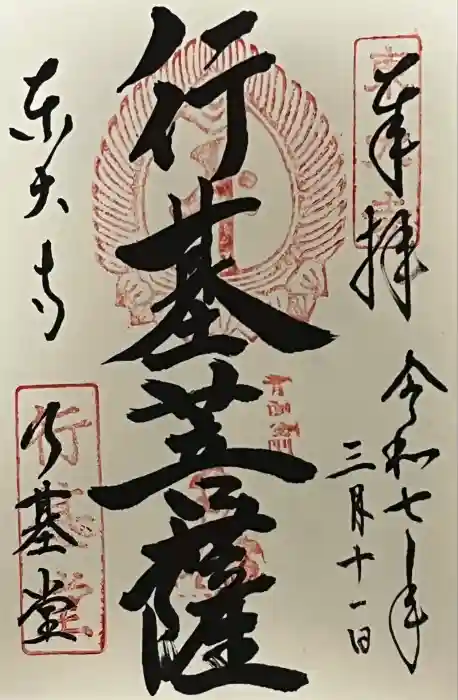 奉拝
令和七年
三月十一日
行基菩薩
東大寺
行基堂
行基堂